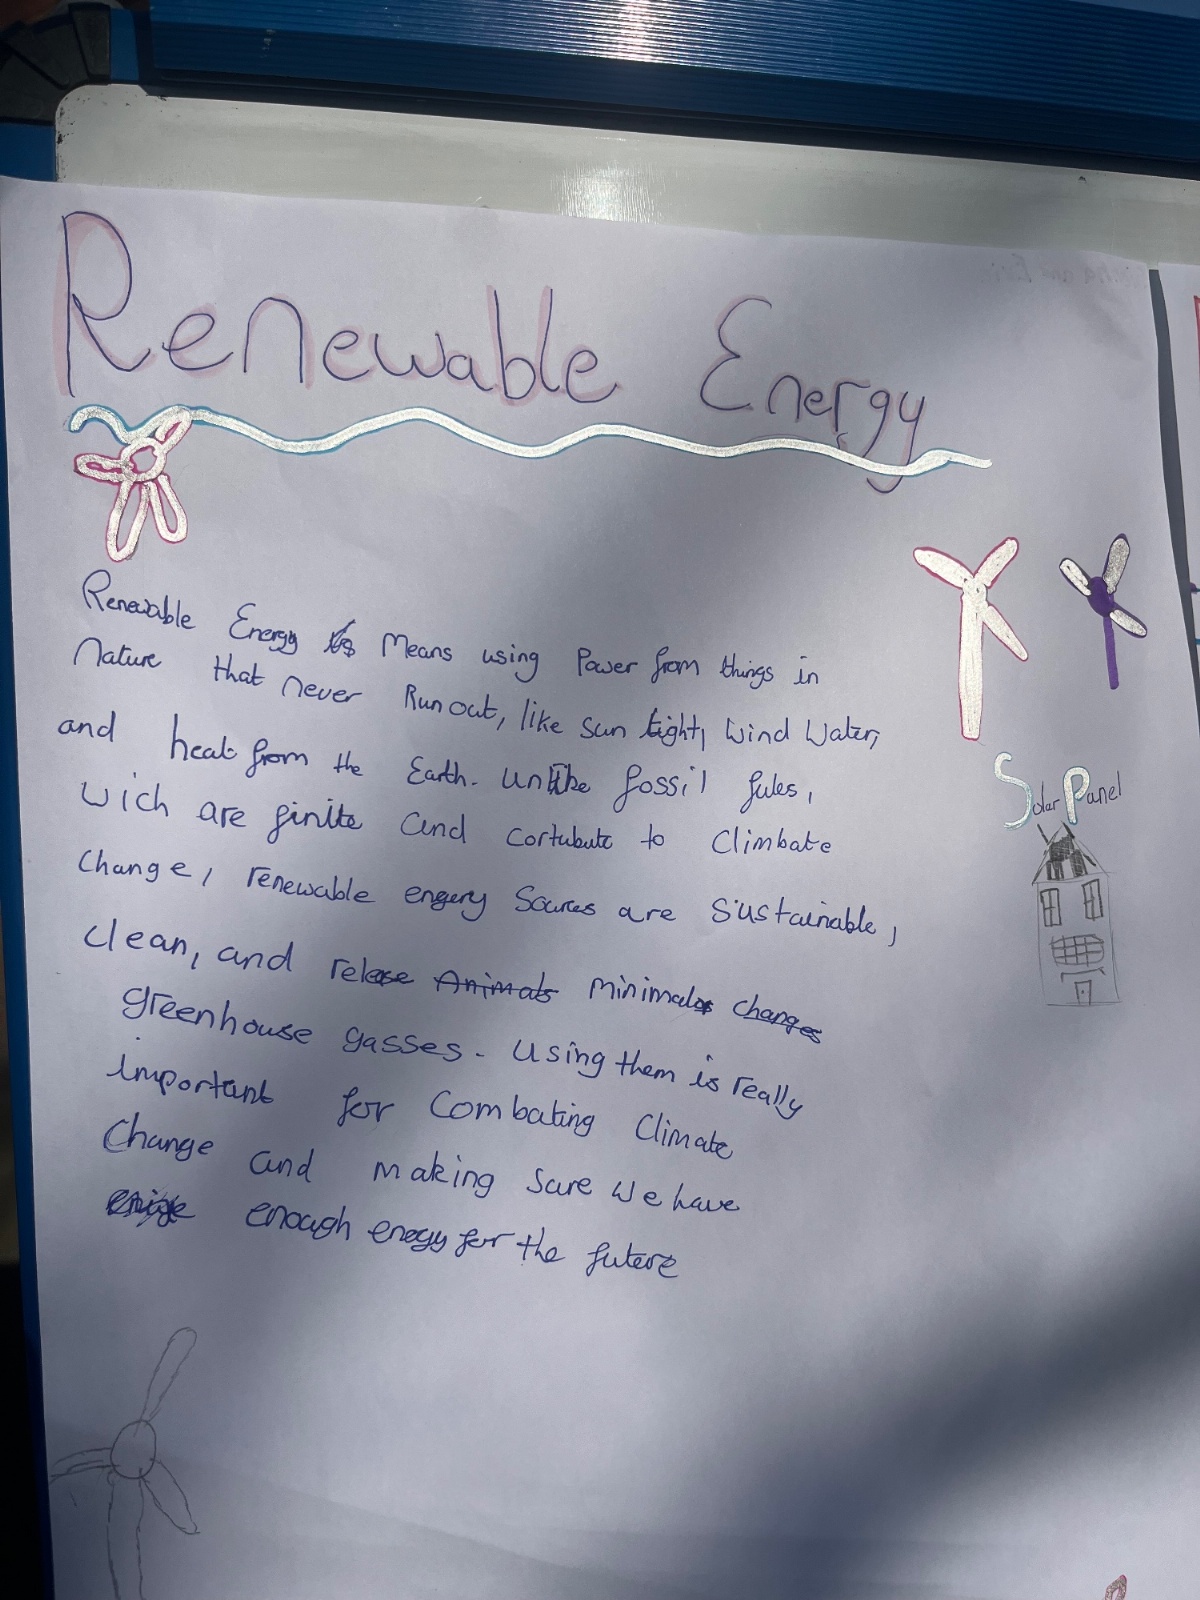 Renewable Energy
Renewable Energy is Means using Power from things in
nature that never Run out, like sun light, Wind Water,
and heat from the Earth. unlike fossil fules,
wich are finite and cortubute to Climbate
change, renewable engery Sources are sustainable,
clean, and relese Animals minimal changes
greenhouse gasses. Using them is really
important for Combating Climate
Change and making sure we have
enough enegy for the futere
Solar Panel